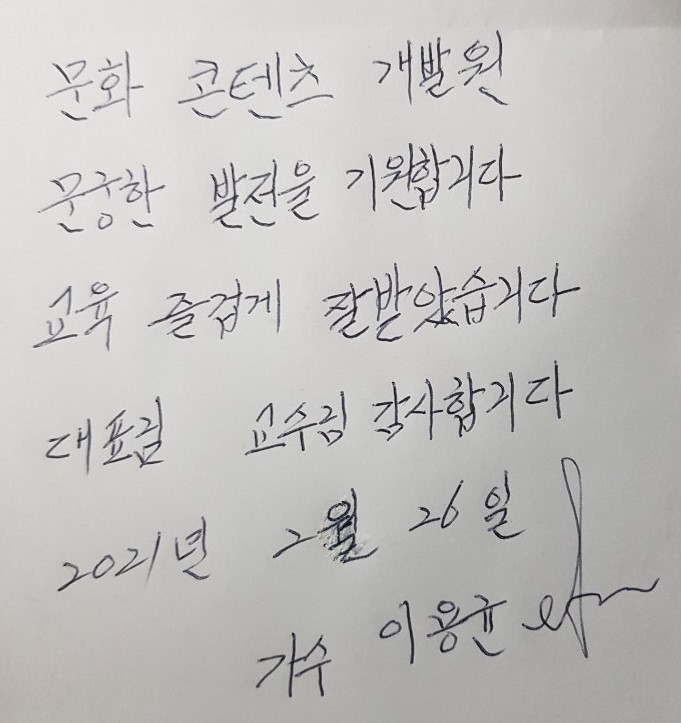 문화 콘텐츠 개발원
문궁한 발전을 기원합니다
교육 즐겁게 잘받았습니다
대표님 교수님 감사합니다
2021년 2월 26일
가수 이용균